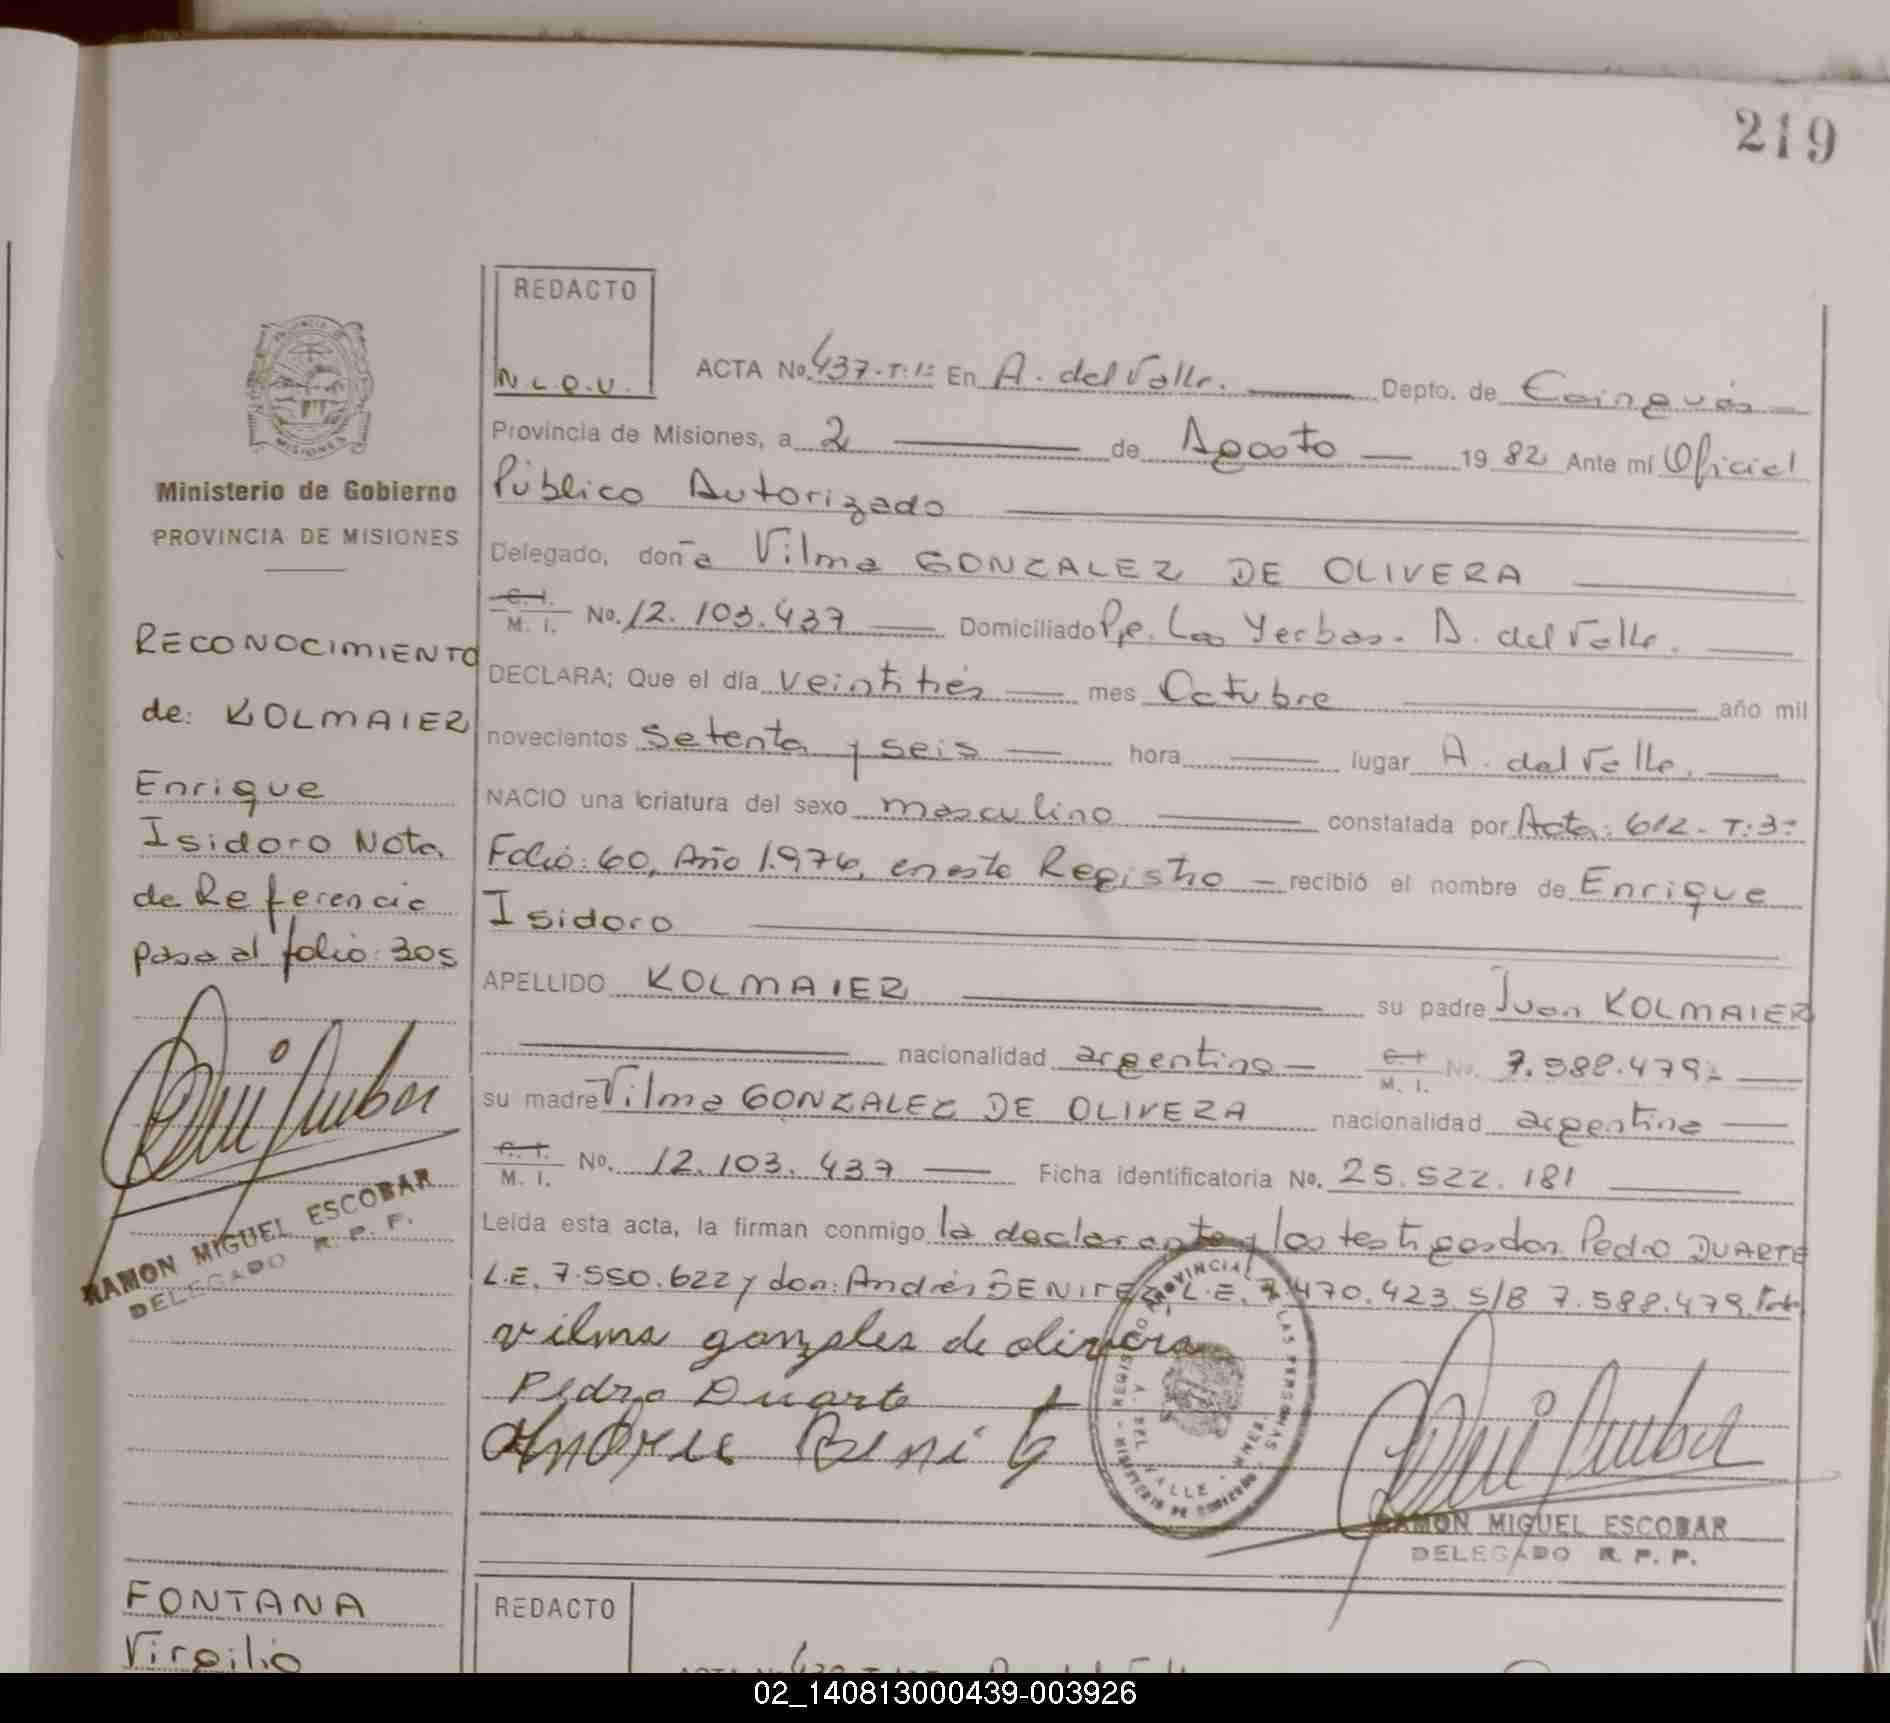 219
REDACTO
N.L.O.U.
ACTA No. 437-T:1: En A. del Valle. Depto. de Cainguás
Provincia de Misiones, a 2 de Agosto 1982 Ante mí Oficial
Público Autorizado
Delegado, doña Vilma GONZALEZ DE OLIVERA
C. I.
M. I. No. 12.103.437 Domiciliado Pje. Las Yerbas - A. del Valle.
DECLARA; Que el día veintitrés mes Octubre año mil
novecientos setenta y seis hora lugar A. del Valle.
NACIO una criatura del sexo masculino constatada por Acta: 612 - T:3:
Folio: 60, Año 1.976, en este Registro - recibió el nombre de Enrique
Isidoro
APELLIDO KOLMAIER su padre Juan KOLMAIER
nacionalidad argentino C. I.
M. I. No. 7.588.479-
su madre Vilma GONZALEZ DE OLIVERA nacionalidad argentina
C. I.
M. I. No. 12.103.437 Ficha identificatoria No. 25.522.181
Leída esta acta, la firman conmigo la declarante y los testigos don Pedro DUARTE
L.E. 7.550.622 y don: Andrés BENITEZ, L.E. 7.470.423 S/B 7.588.479.
vilma gonzales de olivera
Pedro Duarte
Andres Benit
REGISTRO PROVINCIAL DE LAS PERSONAS
A. DEL VALLE
MINISTERIO DE GOBIERNO
RAMON MIGUEL ESCOBAR
DELEGADO R. P. P.
PROVINCIA DE
MISIONES
Ministerio de Gobierno
PROVINCIA DE MISIONES
RECONOCIMIENTO
de: KOLMAIER
Enrique
Isidoro Nota
de Referencia
pasa al folio: 305
RAMON MIGUEL ESCOBAR
DELEGADO R. P. P.
FONTANA
Virgilio
REDACTO
02_140813000439-003926